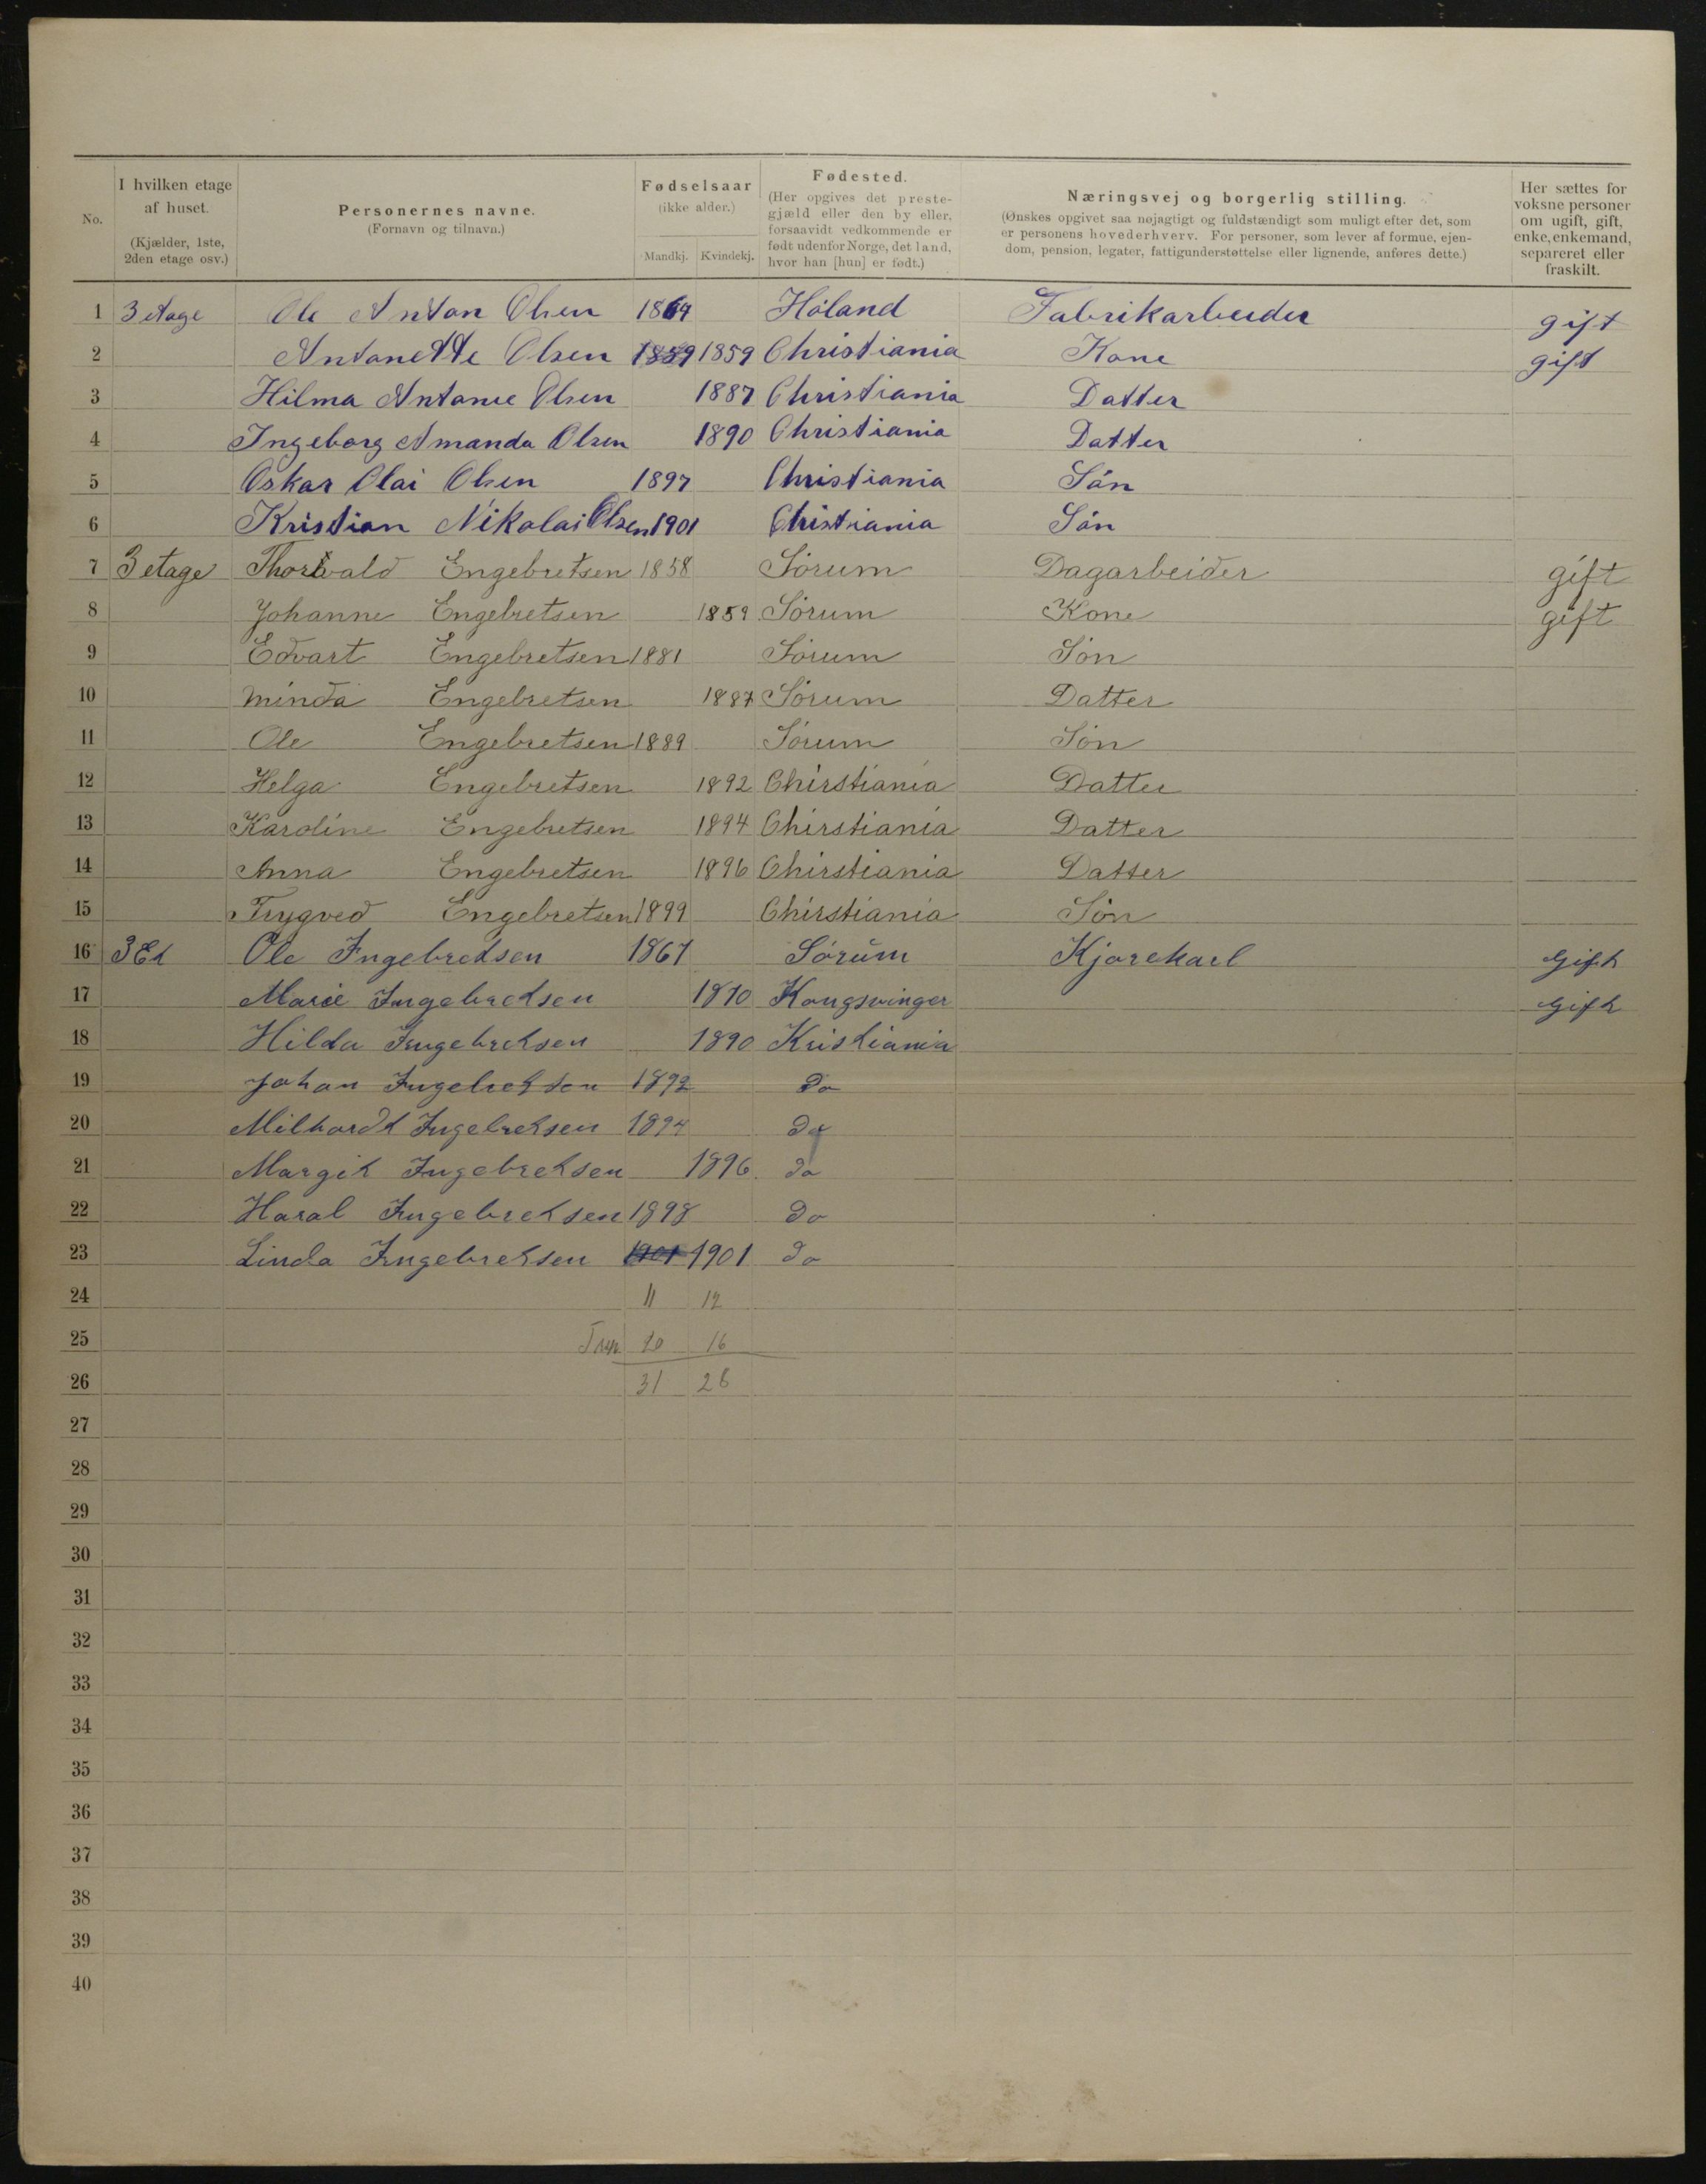 No.
I hvilken etage af huset.
(Kjælder, 1ste, 2den etage osv.)
Personernes navne.
(Fornavn og tilnavn.)
Fødselsaar
(ikke alder.)
Mandkj. Kvindekj.
Fødested.
(Her opgives det prestegjæld eller den by eller, forsaavidt vedkommende er født udenfor Norge, det land, hvor han [hun] er født.)
Næringsvej og borgerlig stilling.
(Ønskes opgivet saa nøjagtigt og fuldstændigt som muligt efter det, som er personens hovederhverv. For personer, som lever af formue, ejendom, pension, legater, fattigunderstøttelse eller lignende, anføres dette.)
Her sættes for voksne personer om ugift, gift, enke, enkemand, separeret eller fraskilt.
1 3 etage Ole Anton Olsen 1864 Høland Fabrikarbeider gift
2 Antonette Olsen 1859 1859 Christiania Kone gift
3 Hilma Antonie Olsen 1887 Christiania Datter
4 Ingeborg Amanda Olsen 1890 Christiania Datter
5 Oskar Olai Olsen 1897 Christiania Sön
6 Kristian Nikolai Olsen 1901 Christiania Sön
7 3 etage Thorvald Engebretsen 1858 Sörum Dagarbeider gift
8 Johanne Engebretsen 1859 Sörum Kone gift
9 Edvart Engebretsen 1881 Sörum Sön
10 Minda Engebretsen 1887 Sörum Datter
11 Ole Engebretsen 1889 Sörum Sön
12 Helga Engebretsen 1892 Chirstiania Datter
13 Karoline Engebretsen 1894 Chirstiania Datter
14 Anna Engebretsen 1896 Chirstiania Datter
15 Trygved Engebretsen 1899 Chirstiania Sön
16 3 Et Ole Ingebretsen 1867 Sörum Kjørekarl Gift
17 Marie Ingebretsen 1870 Kongsvinger Gift
18 Hilda Ingebretsen 1890 Kristiania
19 Johan Ingebretsen 1892 do
20 Milhardt Ingebretsen 1894 do
21 Margit Ingebretsen 1896 do
22 Haral Ingebretsen 1898 do
23 Linda Ingebretsen 1901 1901 do
24 11 12
25 Trsp. 20 16
26 31 28
27
28
29
30
31
32
33
34
35
36
37
38
39
40